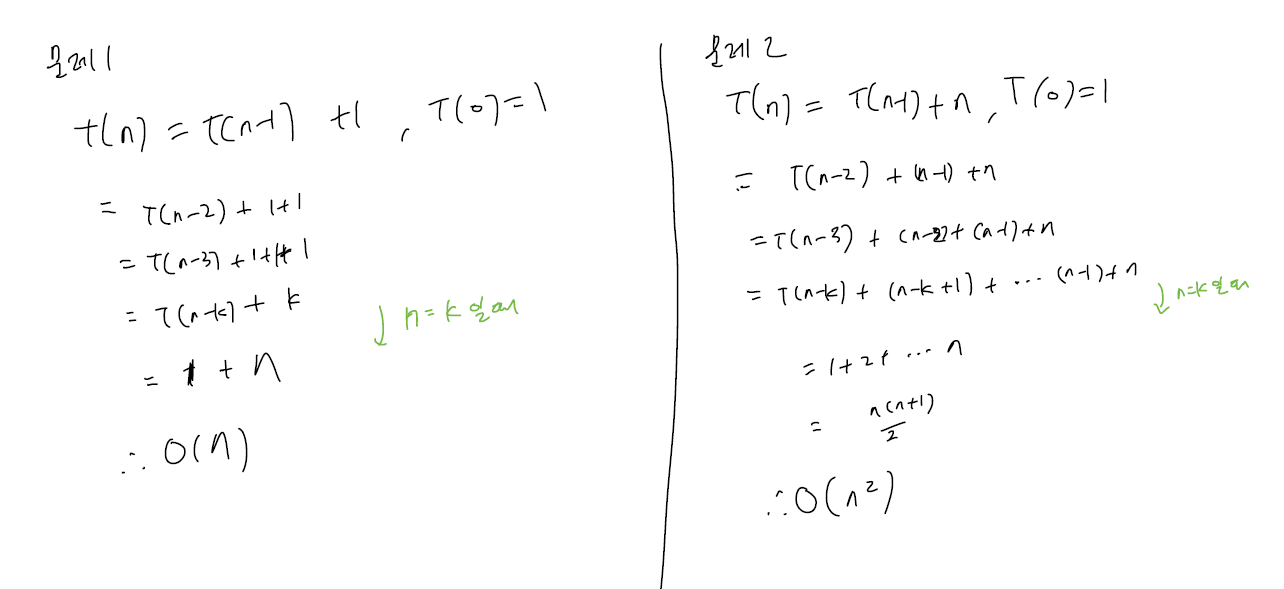 문제 1
T(n) = T(n-1) + 1 , T(0) = 1
= T(n-2) + 1+1
= T(n-3) + 1+1+1
= T(n-k) + k
↓ n=k 일 때
= 1 + n
∴ O(n)
문제 2
T(n) = T(n-1) + n , T(0) = 1
= T(n-2) + (n-1) + n
= T(n-3) + (n-2) + (n-1) + n
= T(n-k) + (n-k+1) + ... (n-1) + n
↓ n=k 일 때
= 1+2+ ... n
= n(n+1)/2
∴ O(n²)